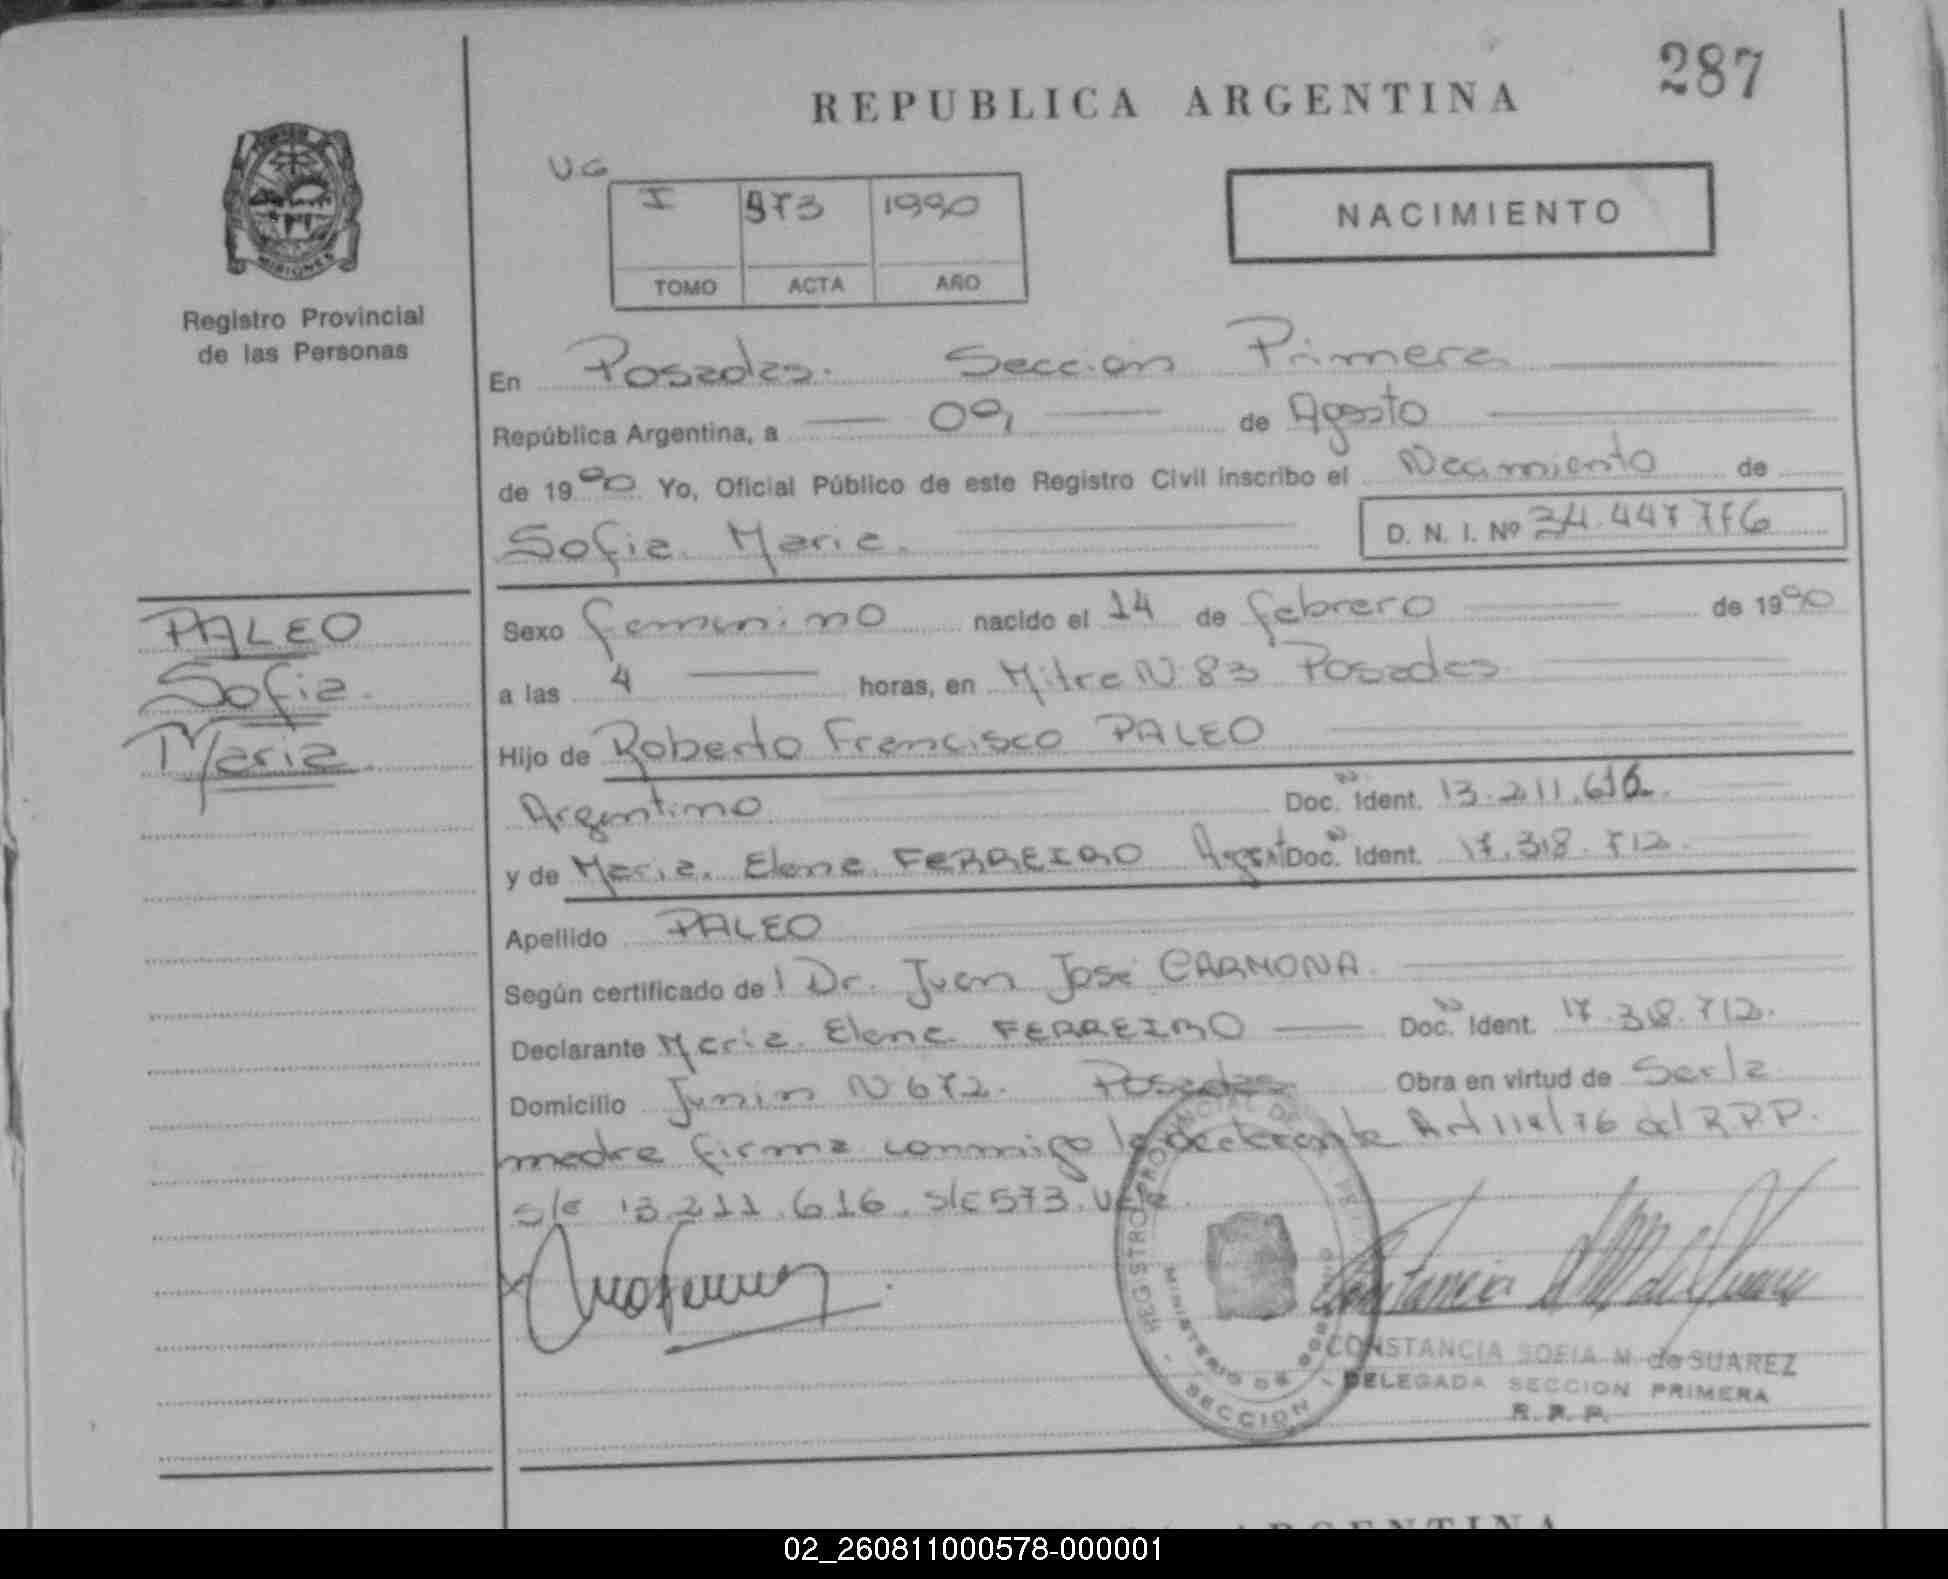 287
REPUBLICA ARGENTINA
MISIONES
Registro Provincial
de las Personas
UG
I 573 1990
TOMO ACTA AÑO
NACIMIENTO
En Posadas. Sección Primera
República Argentina, a 09, de Agosto
de 1990 Yo, Oficial Público de este Registro Civil inscribo el Nacimiento de
Sofia Maria. D. N. I. Nº 34.447.776
PALEO
Sofia
Maria
Sexo femenino nacido el 14 de febrero de 1990
a las 4 horas, en Mitre N 83 Posadas
Hijo de Roberto Francisco PALEO
Argentino Doc. N Ident. 13.211.616.
y de Maria Elena FERREIRO Argent Doc. N Ident. 17.318.712.
Apellido PALEO
Según certificado de l Dr. Juan José CARMONA.
Declarante Maria Elena FERREIRO Doc. N Ident. 17.318.712.
Domicilio Junin N 672. Posadas Obra en virtud de Ser la
madre firma conmigo la declarante Art 118/76 del R.P.P.
s/e 13.211.616. s/e 573. Vale.
REGISTRO PROVINCIAL DE
MINISTERIO DE GOBIERNO
SECCION
CONSTANCIA SOFIA M. de SUAREZ
DELEGADA SECCION PRIMERA
R. P. P.
REPUBLICA ARGENTINA
02_260811000578-000001